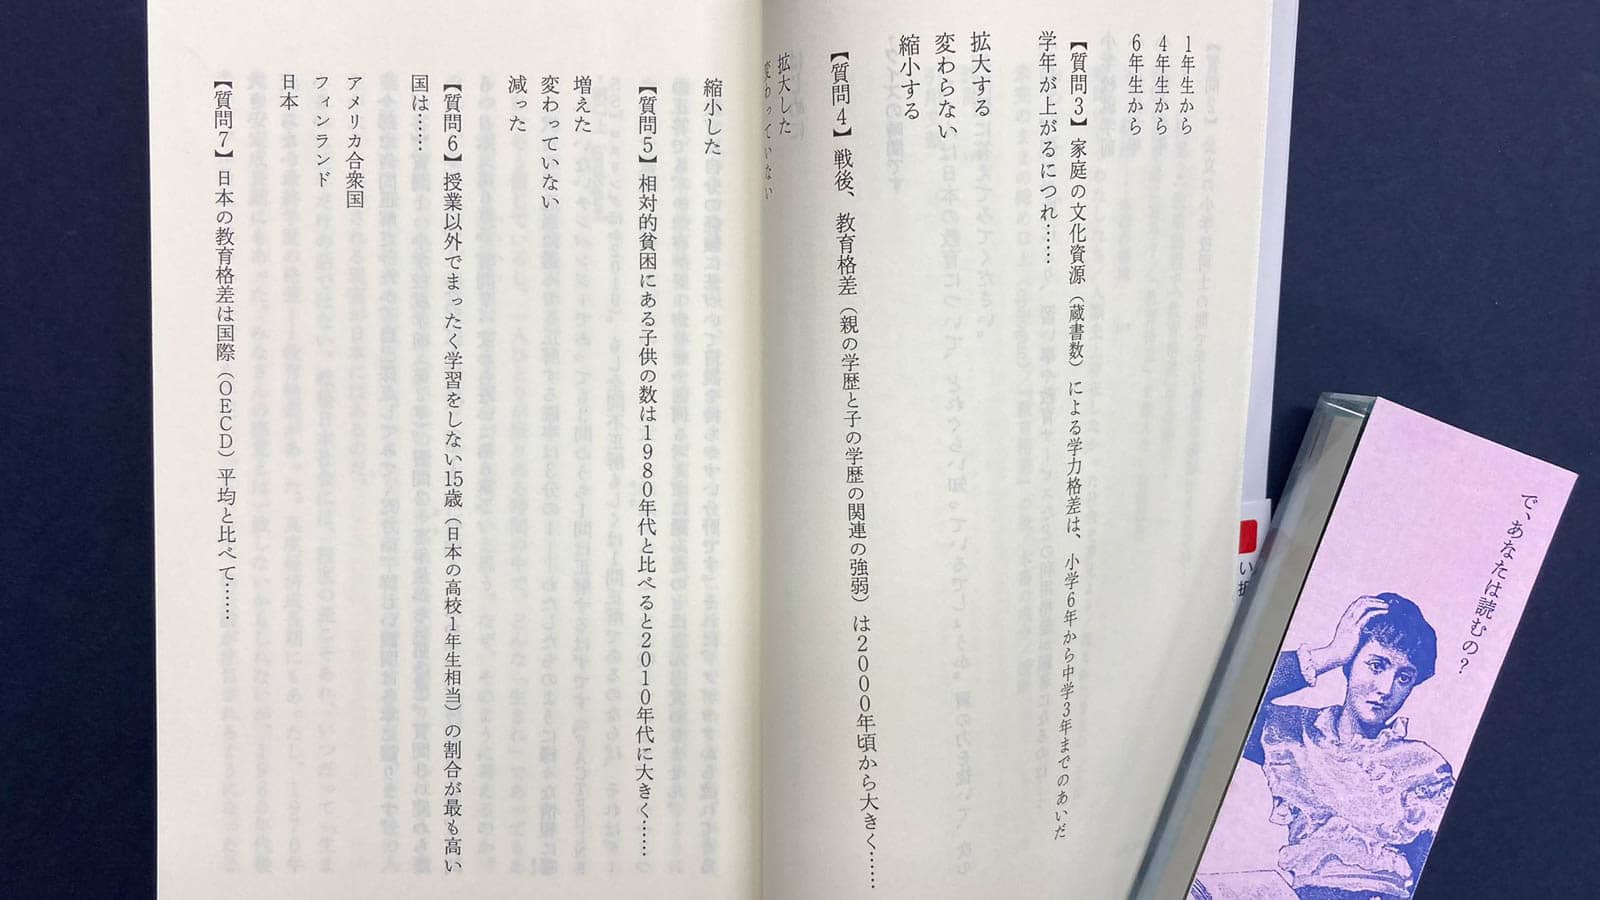 1年生から
4年生から
6年生から
【質問3】 家庭の文化資源（蔵書数）による学力格差は、小学6年から中学3年までのあいだ
学年が上がるにつれ……
拡大する
変わらない
縮小する
【質問4】 戦後、教育格差（親の学歴と子の学歴の関連の強弱）は2000年頃から大きく……
拡大した
変わっていない
縮小した
【質問5】 相対的貧困にある子供の数は1980年代と比べると2010年代に大きく……
増えた
変わっていない
減った
【質問6】 授業以外でまったく学習をしない15歳（日本の高校1年生相当）の割合が最も高い
国は……
アメリカ合衆国
フィンランド
日本
【質問7】 日本の教育格差は国際（OECD）平均と比べて……
で、あなたは読むの？